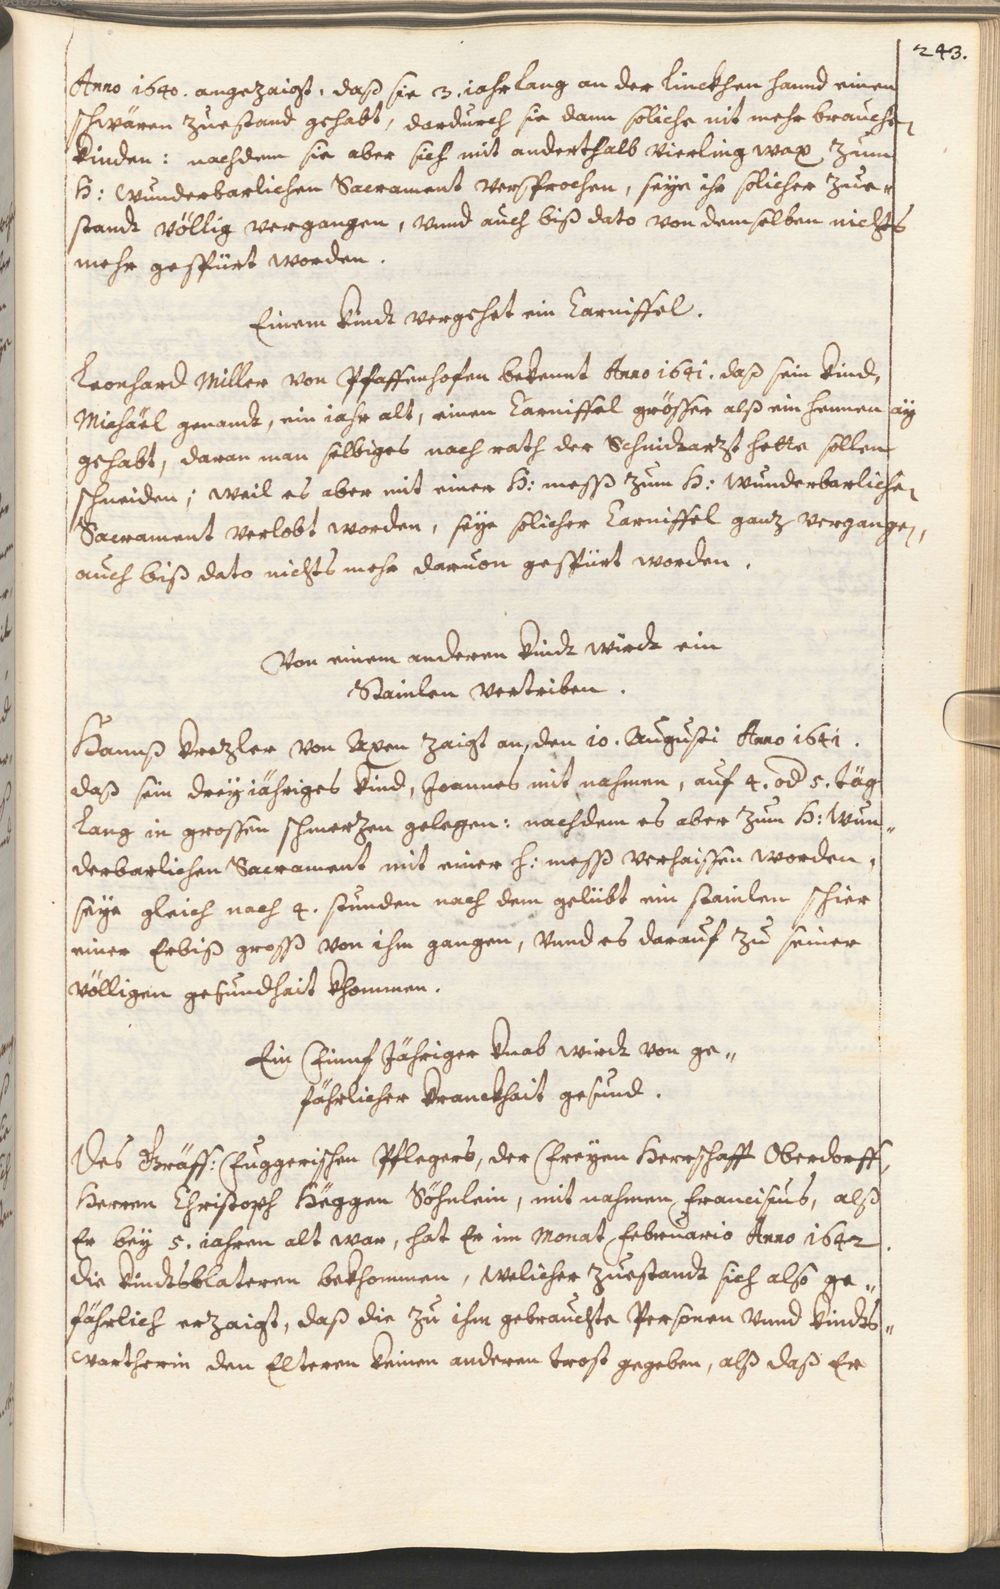 243.
Anno 1640. angezaigt, daß sie 3. iahr lang an der linckhen hannd einen
schwären zuestand gehabt, dardurch sie dann soliche nit mehr brauchen
kinden: nachdem sie aber sich mit anderthalb vierling wax zum
H: Wunderbarlichen Sacrament versprochen, seye ihr solicher zue-
standt völlig vergangen, vnnd auch biß dato von demselben nichts
mehr gespürt worden.
Einem kindt vergehet ein Carniffel.
Leonhard Miller von Pfaffenhofen bekennt Anno 1641. daß sein kind,
Michäel genandt, ein iahr alt, einen Carniffel grösser alß ein hennen äy
gehabt, daran man selbiges nach rath der Schnidtarzt hette sollen
schneiden; weil es aber mit einer H: mess zum H: Wunderbarlichen
Sacrament verlobt worden, seye solicher Carniffel ganz vergangen,
auch biß dato nichts mehr daruon gespürt worden.
Von einem anderen kindt wirdt ein
Stainlen vertriben.
Hannß Krezler von Axen zaigt an, den 10. Augusti Anno 1641.
daß sein dreyiähriges kind, Joannes mit nahmen, auf 4. od 5. täg
lang in grossen schmerzen gelegen: nachdem es aber zum H: Wun„
derbarlichen Sacrament mit einer h: mess verhaissen worden,
seye gleich nach 4. stunden nach dem gelübt ein stainlen schier
einer Erbiß gross von ihm gangen, vnnd es darauf zu seiner
völligen gesundhait khommen.
Ein Finnf Jähriger knab wirdt von ge„
fährlicher kranckhait gesund.
Des Gräff: Fuggerischen Pflegers, der Freyen Herrschafft Oberdorff,
Herren Christoph Häggen Söhnlein, mit nahmen Franciscus, alß
Er bey 5. iahren alt war, hat Er im Monat Februario Anno 1642.
die kindtsblateren bekhommen, welicher zuestandt sich also ge„
fährlich erzaigt, daß die zu ihm gebrauchte Personen vnnd kindts„
wartherin den Elteren keinen anderen trost gegeben, alß daß Er